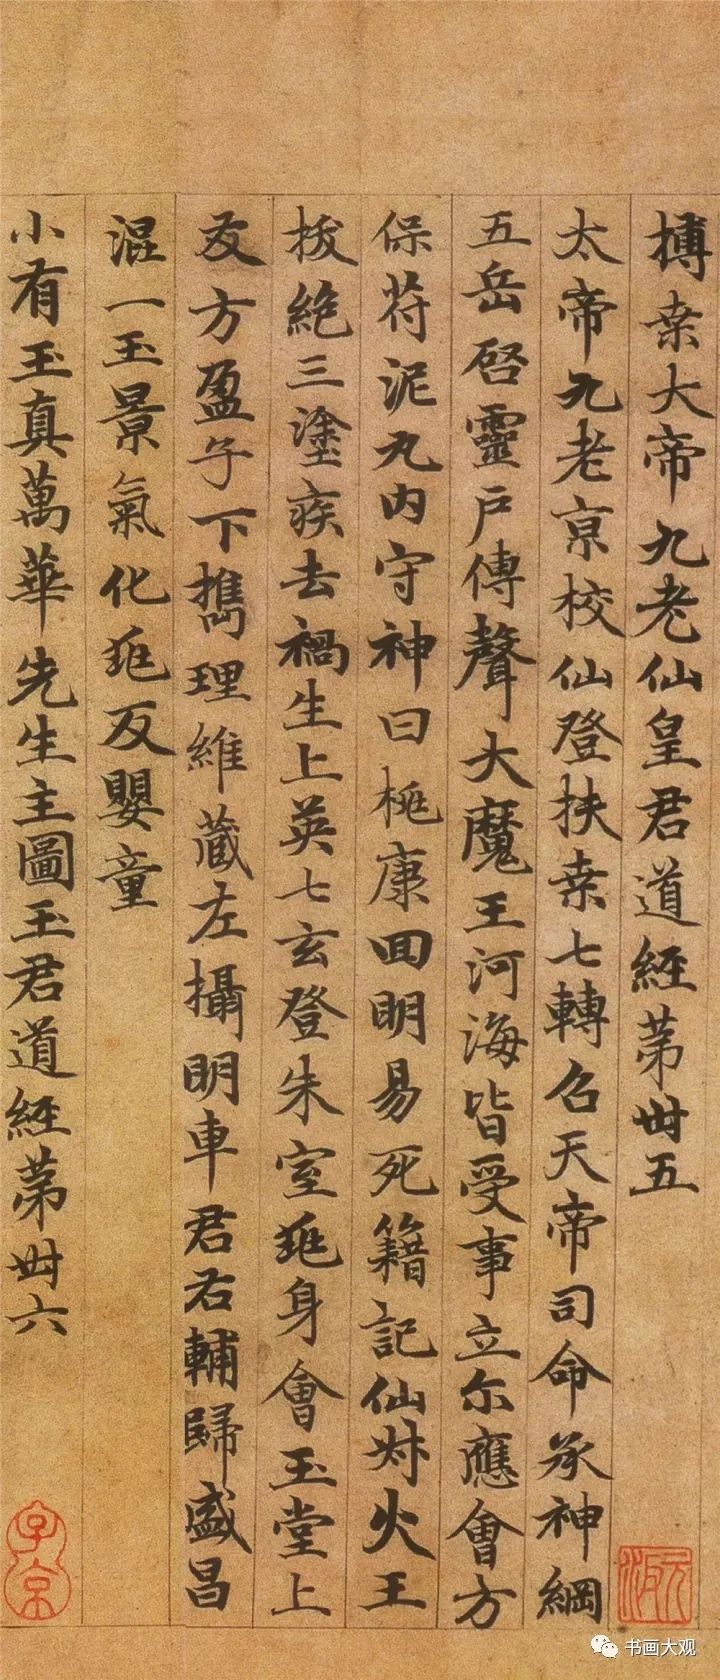 搏桒大帝九老仙皇君道經苐卌五
太帝九老京校仙登扶桒七轉召天帝司命承神綱
五岳啓靈户傳聲大魔王河海皆受事立尒應會方
保苻泥丸内守神曰桃康回明易死籍記仙対火王
拔絶三塗疾去禍生上英七玄登朱室 身會玉堂上
友方盈子下携理維蔵左攝明車君右輔歸盛昌
混一玉景氣化 反嬰童
小有玉真萬華先生主圖玉君道經苐卌六
子京
書画大观